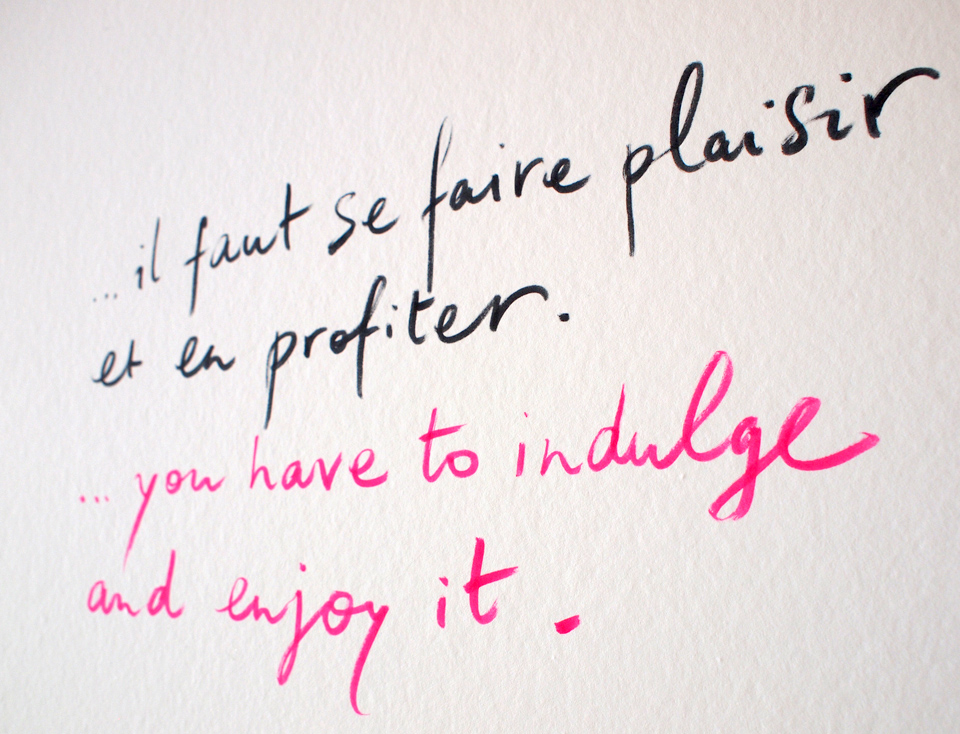 ...il faut se faire plaisir
et en profiter.
...you have to indulge
and enjoy it.